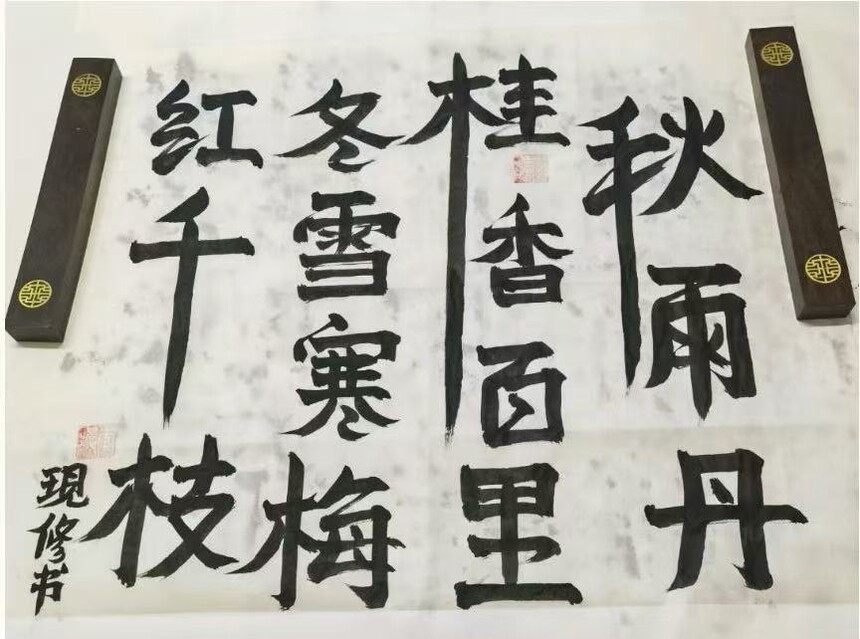 秋雨丹
桂香百里
冬雪寒梅
红千枝
現修书